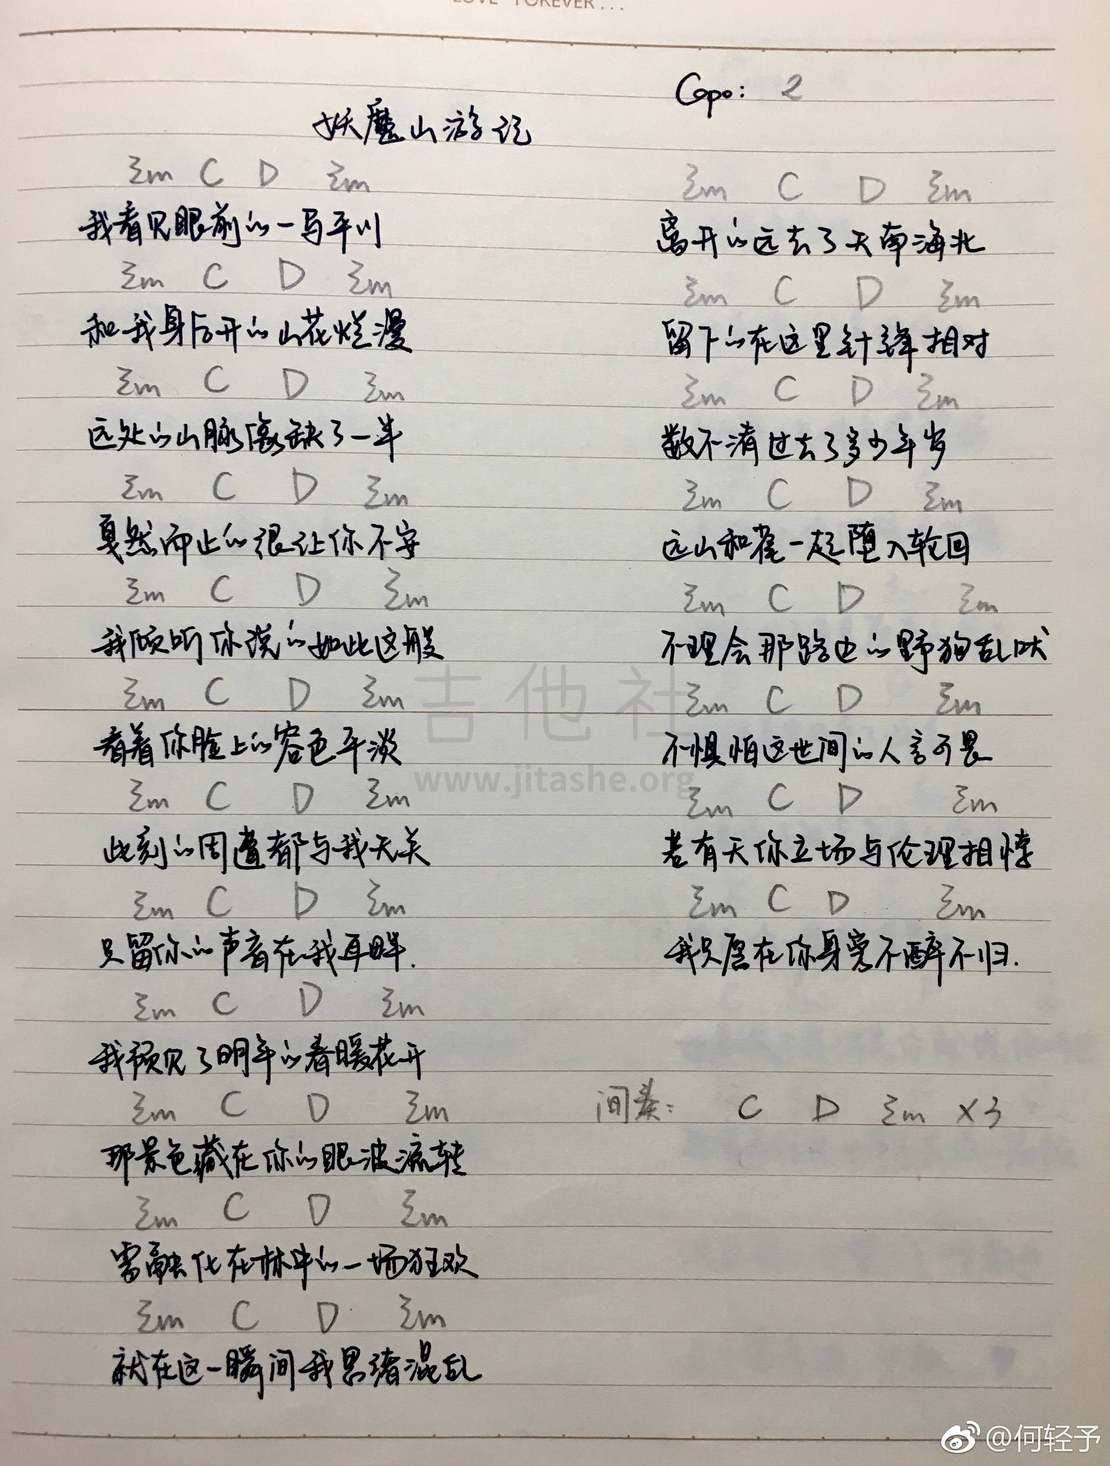 LOVE FOREVER...
Capo: 2
妖魔山游记
Em C D Em
我看见眼前的一马平川
Em C D Em
和我身后开的山花烂漫
Em C D Em
远处的山脉像缺了一半
Em C D Em
戛然而止的很让你不安
Em C D Em
我倾听你说的如此这般
Em C D Em
看着你脸上的容色平淡
Em C D Em
此刻的周遭都与我无关
Em C D Em
只留你的声音在我耳畔.
Em C D Em
我预见了明年的春暖花开
Em C D Em
那景色藏在你的眼波流转
Em C D Em
雪融化在林中的一场狂欢
Em C D Em
就在这一瞬间我思绪混乱
Em C D Em
离开的远去了天南海北
Em C D Em
留下的在这里针锋相对
Em C D Em
数不清过去了多少年岁
Em C D Em
远山和崖一起堕入轮回
Em C D Em
不理会那路边的野狗乱吠
Em C D Em
不惧怕这世间的人言可畏
Em C D Em
若有天你立场与伦理相悖
Em C D Em
我只愿在你身旁不醉不归.
间奏: C D Em ×3
吉他社
www.jitashe.org
@何轻予